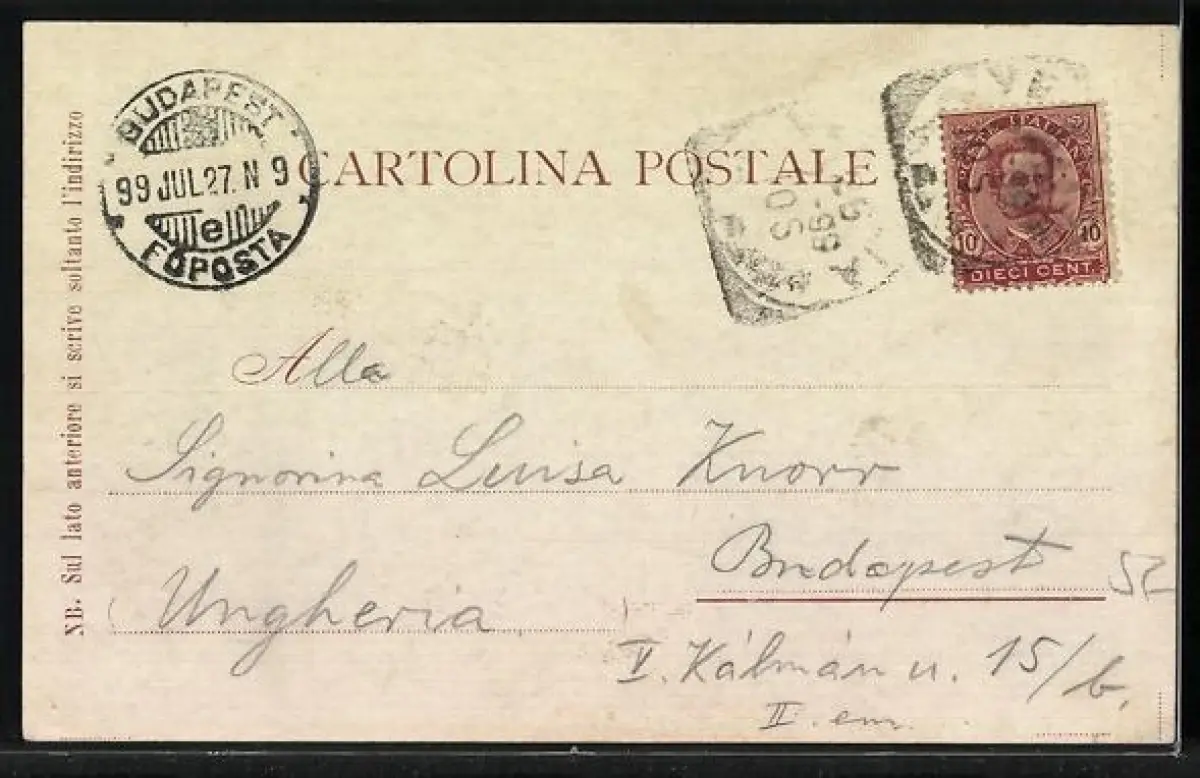 BUDAPEST
99 JUL 27. N 9
e
FŐPOSTA
CARTOLINA POSTALE
10 10
DIECI CENT.
NB. Sul lato anteriore si scrive soltanto l'indirizzo
Alla
Signorina Luisa Knorr
Budapest 52
Ungheria
V. Kálmán u. 15/b,
II. em.